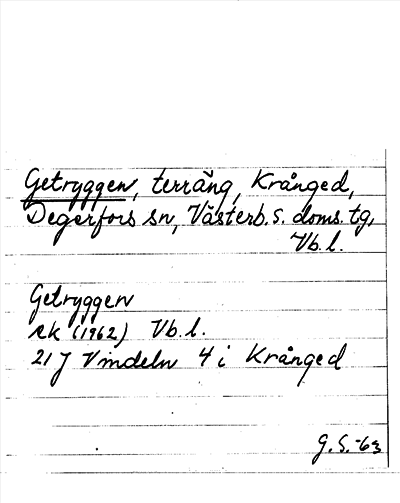 Getryggen, terräng, Krånged,
Degerfors sn, Västerb. s. doms. tg,
Vb. l.
Getryggen
ek (1962) Vb. l.
21 J Vindeln 4 i Krånged
G. S. -63